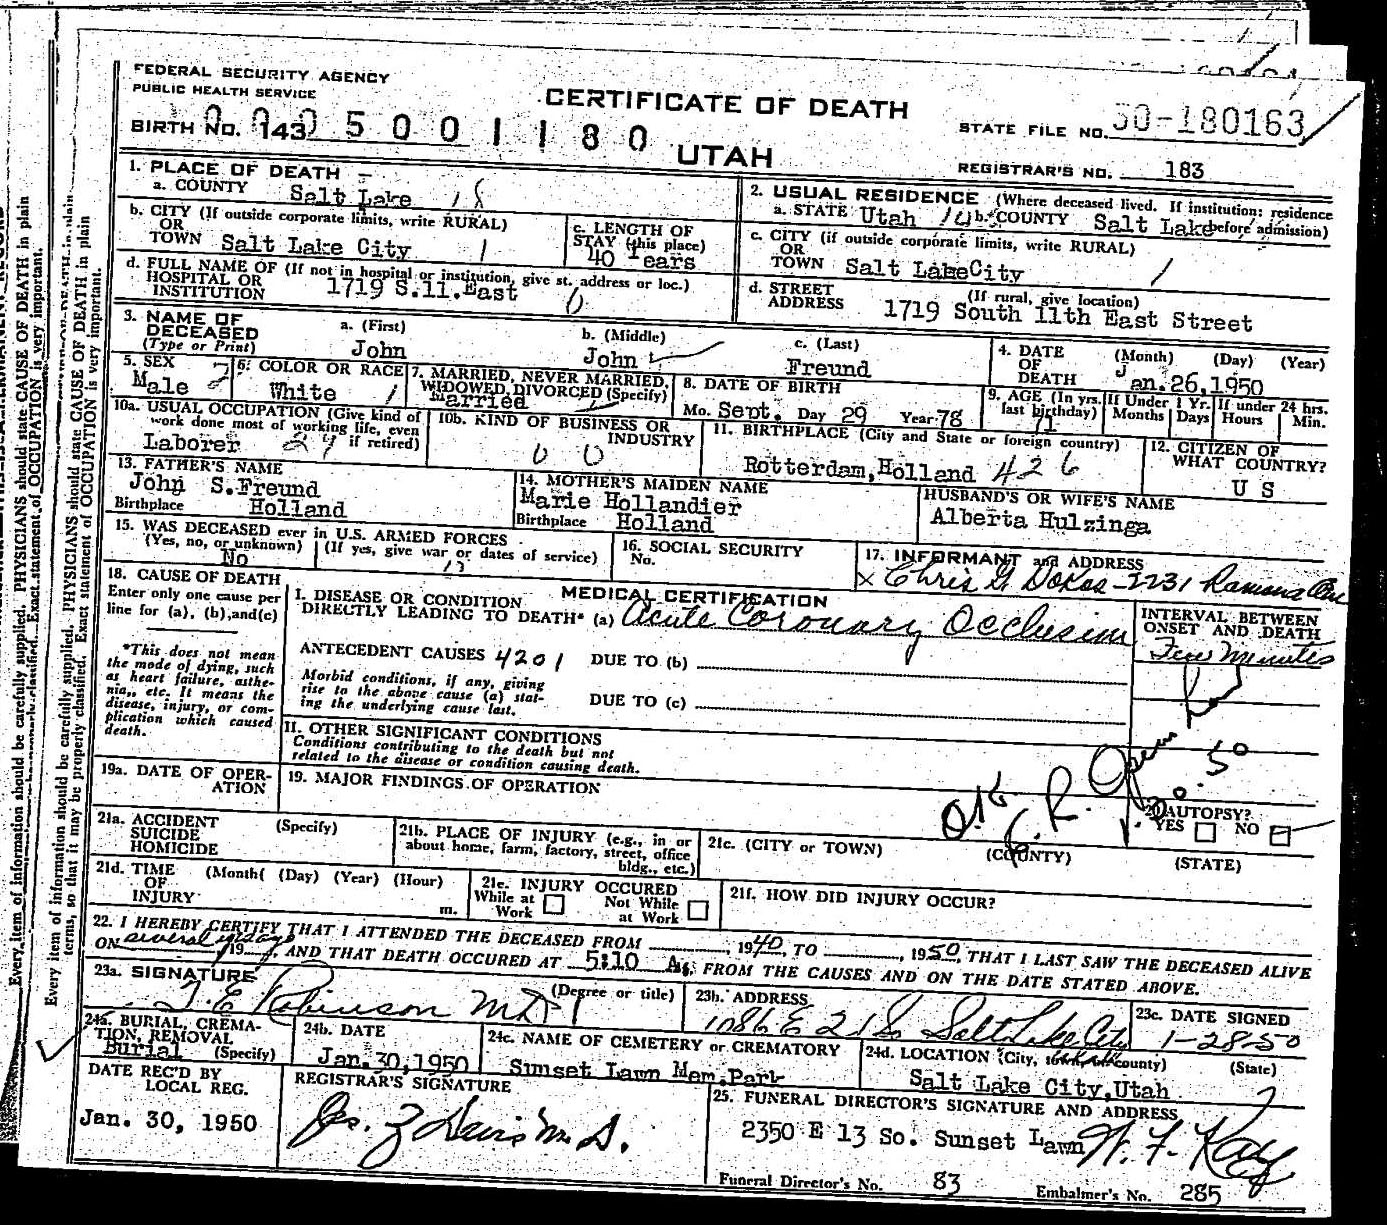 FEDERAL SECURITY AGENCY
PUBLIC HEALTH SERVICE
CERTIFICATE OF DEATH
STATE FILE NO. 50-180163
BIRTH NO. 143
0005001180
UTAH
REGISTRAR'S NO. 183
1. PLACE OF DEATH
a. COUNTY Salt Lake 18
2. USUAL RESIDENCE (Where deceased lived. If institution; residence before admission)
a. STATE Utah b. COUNTY Salt Lake
b. CITY (If outside corporate limits, write RURAL) OR TOWN Salt Lake City 1
c. LENGTH OF STAY (this place) 40 Years
c. CITY (if outside corporate limits, write RURAL) OR TOWN Salt LakeCity 1
d. FULL NAME OF (If not in hospital or institution, give st. address or loc.) HOSPITAL OR INSTITUTION 1719 S.11.East 0
d. STREET ADDRESS (If rural, give location) 1719 South 11th East Street
3. NAME OF DECEASED (Type or Print)
a. (First) John
b. (Middle) John
c. (Last) Freund
4. DATE OF DEATH (Month) (Day) (Year) Jan.26,1950
5. SEX Male 2
6. COLOR OR RACE White 1
7. MARRIED, NEVER MARRIED, WIDOWED, DIVORCED (Specify) Married
8. DATE OF BIRTH Mo. Sept. Day 29 Year 78
9. AGE (In yrs. last birthday) 71
If Under 1 Yr. Months Days
If under 24 hrs. Hours Min.
10a. USUAL OCCUPATION (Give kind of work done most of working life, even if retired) Laborer
10b. KIND OF BUSINESS OR INDUSTRY 0 0
11. BIRTHPLACE (City and State or foreign country) Rotterdam,Holland 426
12. CITIZEN OF WHAT COUNTRY? U S
13. FATHER'S NAME John S.Freund
Birthplace Holland
14. MOTHER'S MAIDEN NAME Marie Hollandier
Birthplace Holland
HUSBAND'S OR WIFE'S NAME Alberta Hulzinga
15. WAS DECEASED ever in U.S. ARMED FORCES
(Yes, no, or unknown) No
(If yes, give war or dates of service)
16. SOCIAL SECURITY No.
17. INFORMANT and ADDRESS
x Chris G Dokos - 2231 Ramona Ave
18. CAUSE OF DEATH
Enter only one cause per line for (a), (b),and(c)
*This does not mean the mode of dying, such as heart failure, asthenia, etc. It means the disease, injury, or complication which caused death.
MEDICAL CERTIFICATION
I. DISEASE OR CONDITION DIRECTLY LEADING TO DEATH* (a) Acute Coronary Occlusion
INTERVAL BETWEEN ONSET AND DEATH
Few Minutes
ANTECEDENT CAUSES 4201 DUE TO (b)
Morbid conditions, if any, giving rise to the above cause (a) stating the underlying cause last.
DUE TO (c)
II. OTHER SIGNIFICANT CONDITIONS
Conditions contributing to the death but not related to the disease or condition causing death.
19a. DATE OF OPERATION
19. MAJOR FINDINGS OF OPERATION
AUTOPSY?
YES NO
21a. ACCIDENT SUICIDE HOMICIDE (Specify)
21b. PLACE OF INJURY (e.g., in or about home, farm, factory, street, office bldg., etc.)
21c. (CITY or TOWN) (COUNTY) (STATE)
21d. TIME OF INJURY (Month( (Day) (Year) (Hour) m.
21e. INJURY OCCURED
While at Work Not While at Work
21f. HOW DID INJURY OCCUR?
22. I HEREBY CERTIFY THAT I ATTENDED THE DECEASED FROM 1940, TO 1950, THAT I LAST SAW THE DECEASED ALIVE
ON several days 19 , AND THAT DEATH OCCURED AT 5:10 A M; FROM THE CAUSES AND ON THE DATE STATED ABOVE.
23a. SIGNATURE (Degree or title) T. E. Robinson MD
23b. ADDRESS 1086 E 21 So Salt Lake City
23c. DATE SIGNED 1-28-50
24a. BURIAL, CREMATION, REMOVAL (Specify) Burial
24b. DATE Jan.30,1950
24c. NAME OF CEMETERY or CREMATORY Sunset Lawn Mem.Park
24d. LOCATION (City, town, or county) (State)
Salt Lake City,Utah
DATE REC'D BY LOCAL REG.
Jan. 30, 1950
REGISTRAR'S SIGNATURE
25. FUNERAL DIRECTOR'S SIGNATURE AND ADDRESS
2350 E 13 So. Sunset Lawn
Funeral Director's No. 83 Embalmer's No. 285
Every item of information should be carefully supplied. PHYSICIANS should state CAUSE OF DEATH in plain
terms, so that it may be properly classified. Exact statement of OCCUPATION is very important.